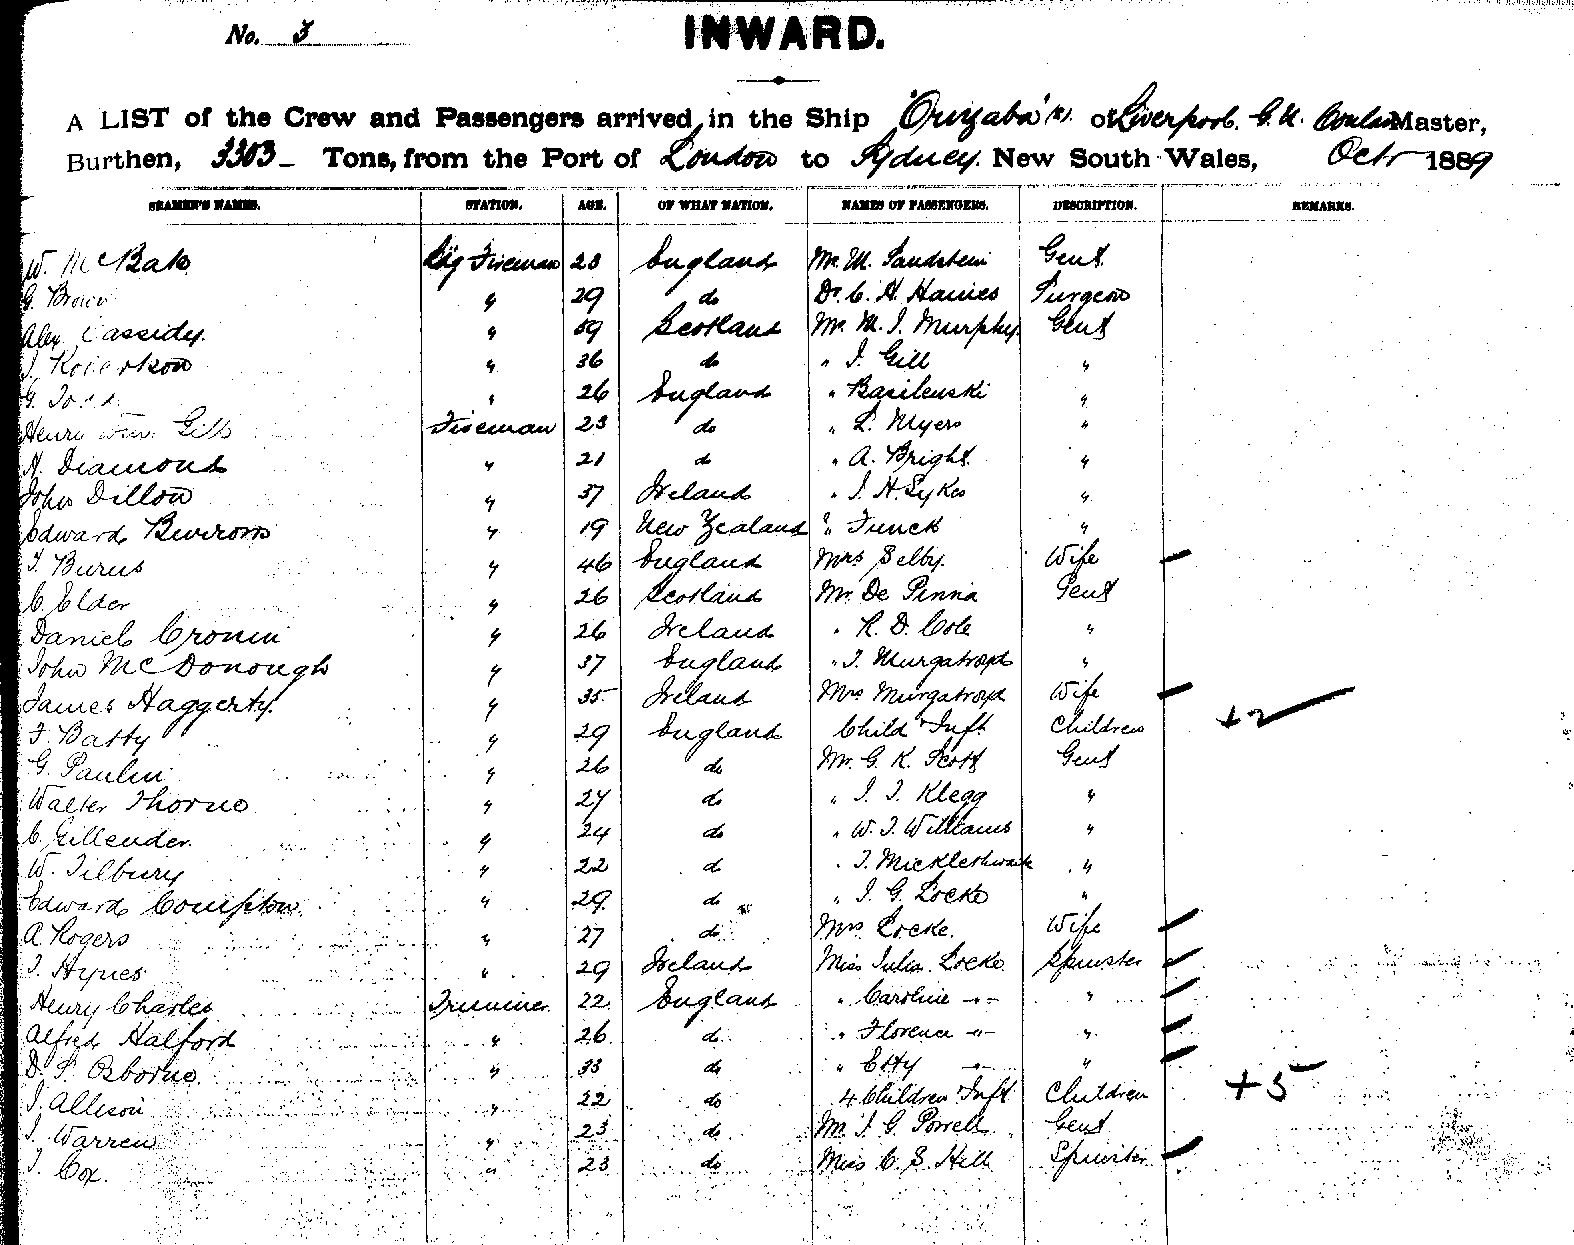 No. 3
INWARD.
A LIST of the Crew and Passengers arrived in the Ship "Orizaba" of Liverpool. G. N. Master,
Burthen, 3303 Tons, from the Port of London to Sydney. New South Wales, Octr 1889
SEAMEN'S NAMES. STATION. AGE. OF WHAT NATION. NAMES OF PASSENGERS. DESCRIPTION. REMARKS.
W. McBate Ldg Fireman 28 England Mr. M. Sandstein Gent.
G. Brown " 29 do Dr. C. H. Haines Surgeon
Alex Cassidy. " 39 Scotland Mr. M. J. Murphy Gent
J. Robertson " 36 do " J. Gill "
G. Todd " 26 England " Basilenski "
Henry Gill Fireman 23 do " L. Myers "
H. Diamond " 21 do " A. Bright. "
John Dillon " 37 Ireland " J. H. Sykes "
Edward Burrows " 19 New Zealand " Funck "
T. Burns " 46 England Mrs Selby. Wife
C. Elder " 26 Scotland Mr. De Pinna Gent
Daniel Cronin " 26 Ireland " R. D. Cole "
John McDonough " 37 England " J. Murgatroyd "
James Haggerty. " 35 Ireland Mrs Murgatroyd Wife
F. Batty " 29 England Child Inft. Children +2
G. Paulin " 26 do Mr. G. K. Scott Gent
Walter Thorne " 27 do " J. J. Klegg "
C. Gillender. " 24 do " W. J. Williams "
W. Tilbury " 22 do " J. Micklethwaite "
Edward Compton. " 29. do " J. G. Locke "
A. Rogers " 27 do Mrs. Locke. Wife
J. Hynes " 29 Ireland Miss Julia. Locke Spinster
Henry Charles Trimmer 22 England " Caroline -"- "
Alfred Halford " 26 do " Florence -"- "
D. S. Osborne " 33 do " Etty -"- "
J. Allison " 22 do 4 Children Inft Children +5
J. Warren " 23 do Mr. J. G. Powell Gent
J. Cox. " 23 do Miss C. S. Hill Spinster